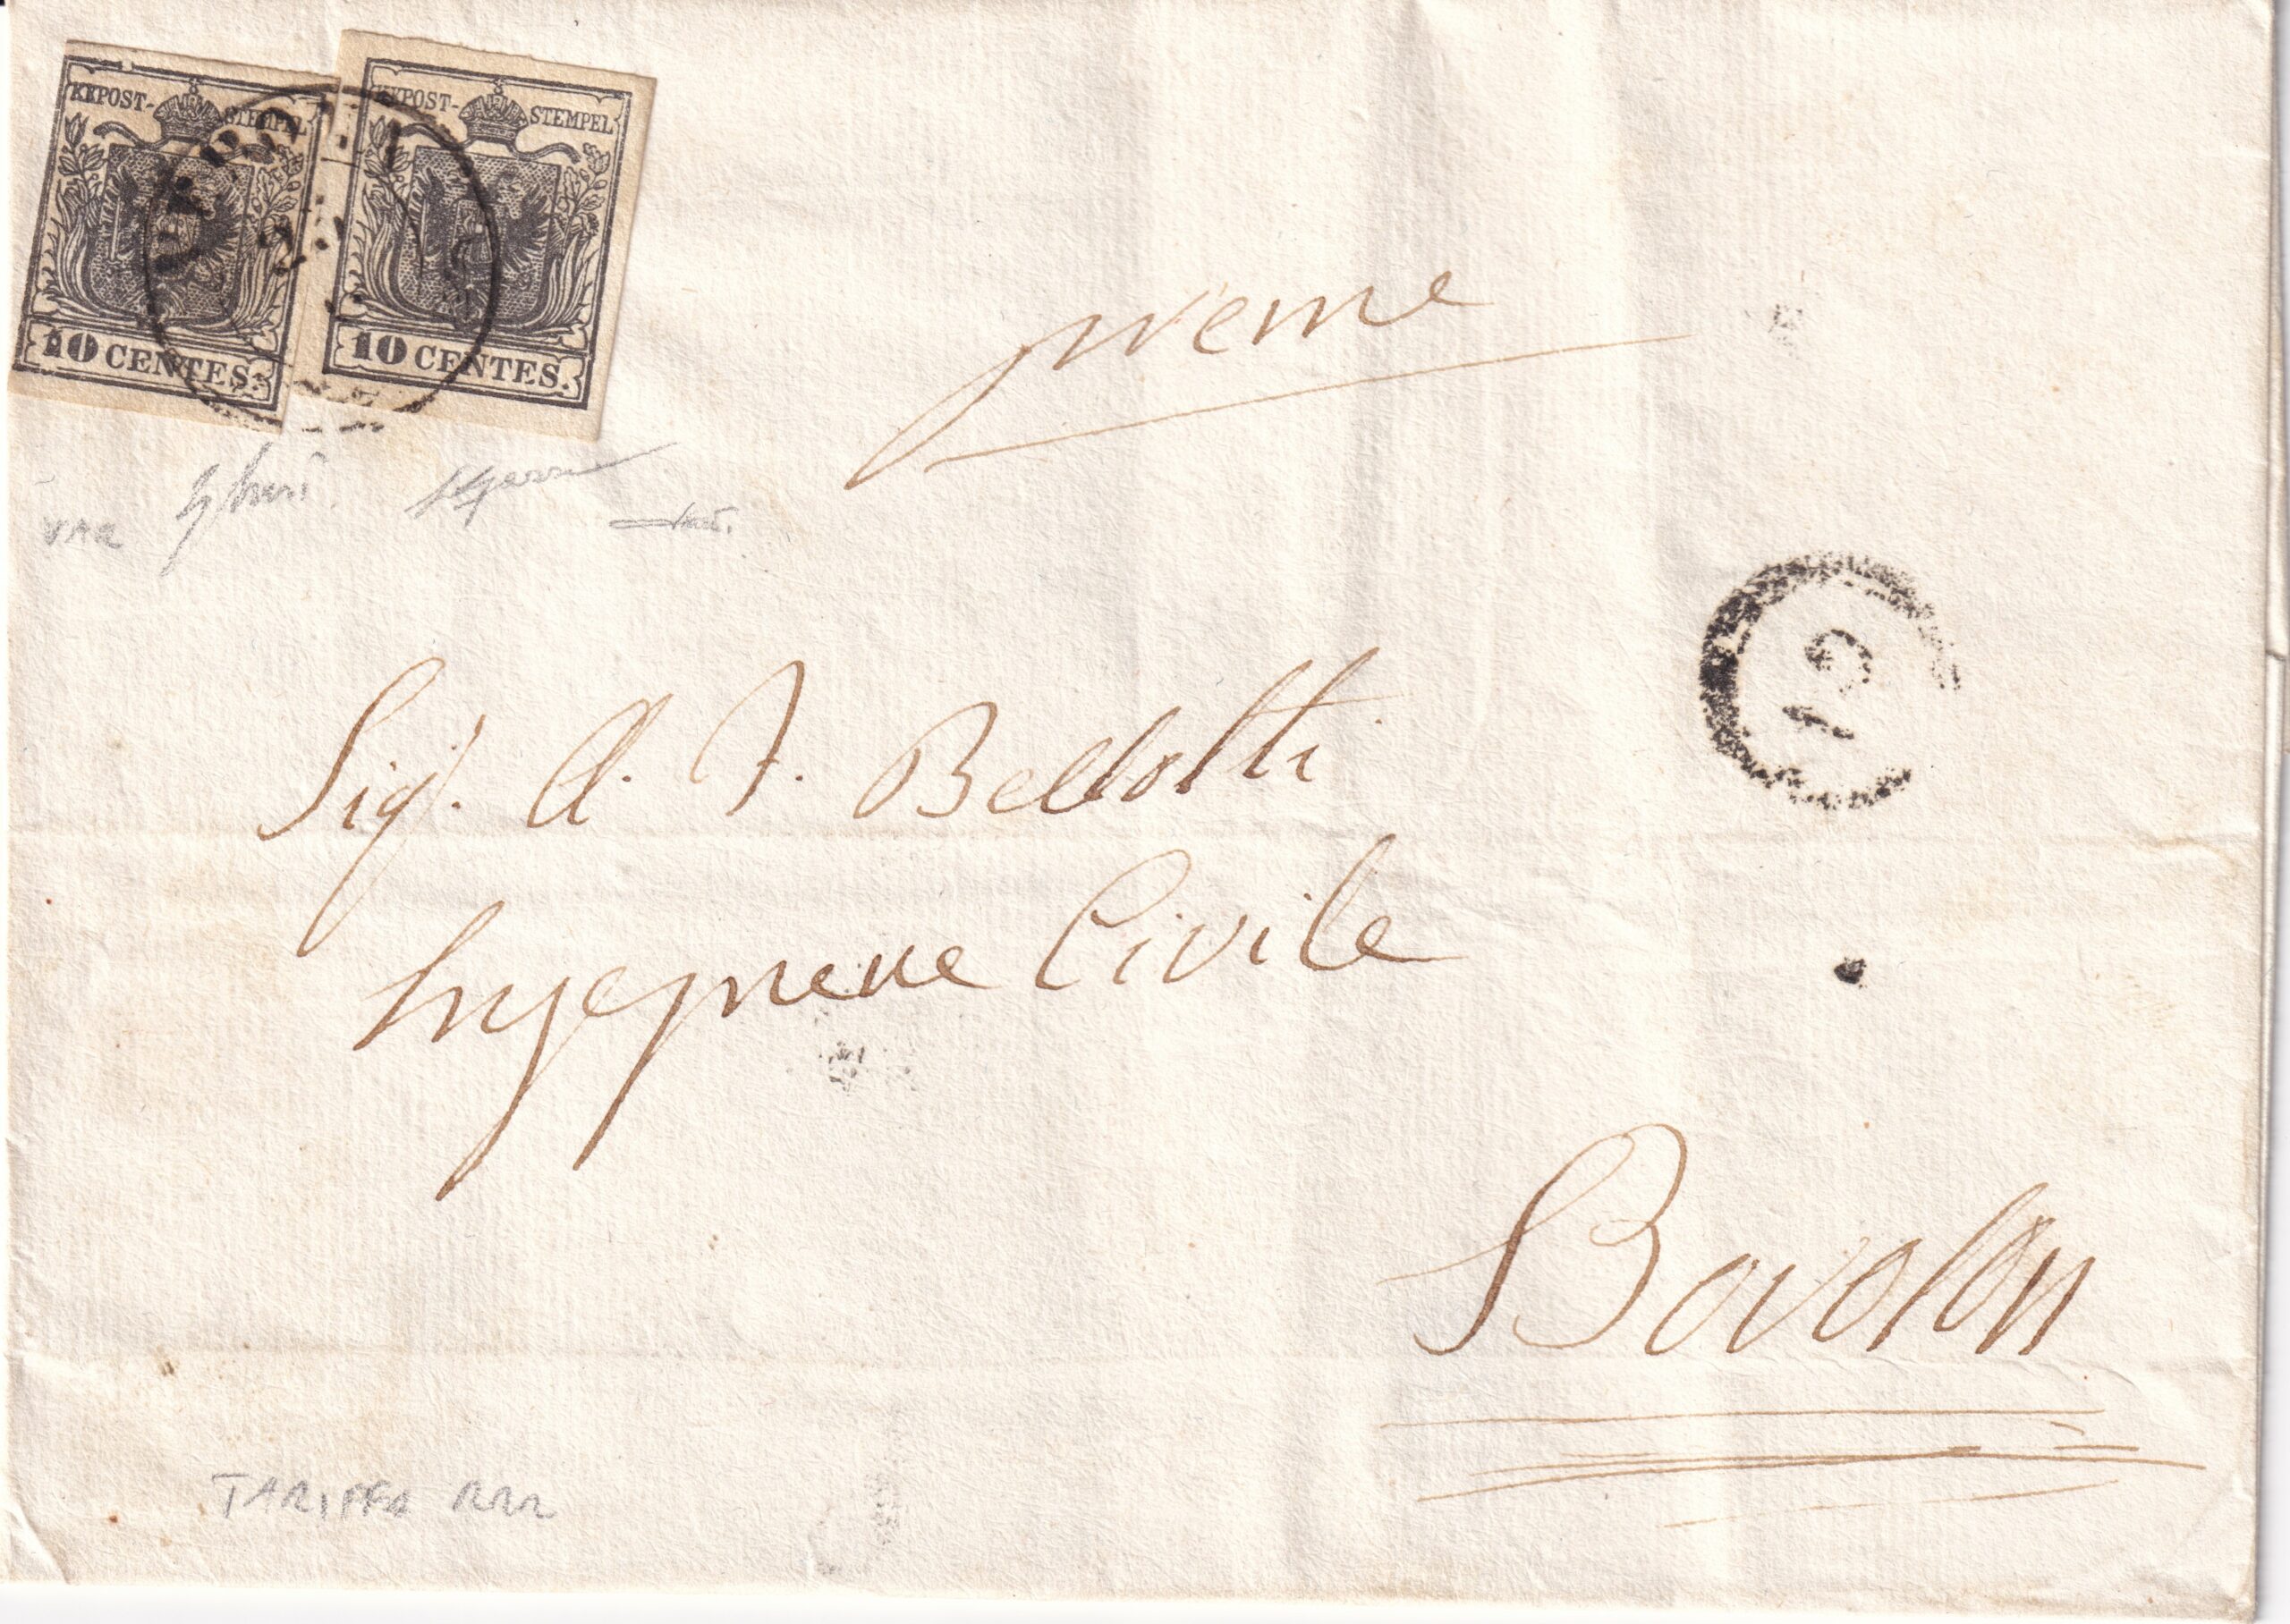 KKPOST-STEMPEL
10 CENTES.
KKPOST-STEMPEL
10 CENTES.
VERONA
preme
VAR
12
Sigr. A. F. Bellotti
Ingegnere Civile
Bovolon
TARIFFA RRR